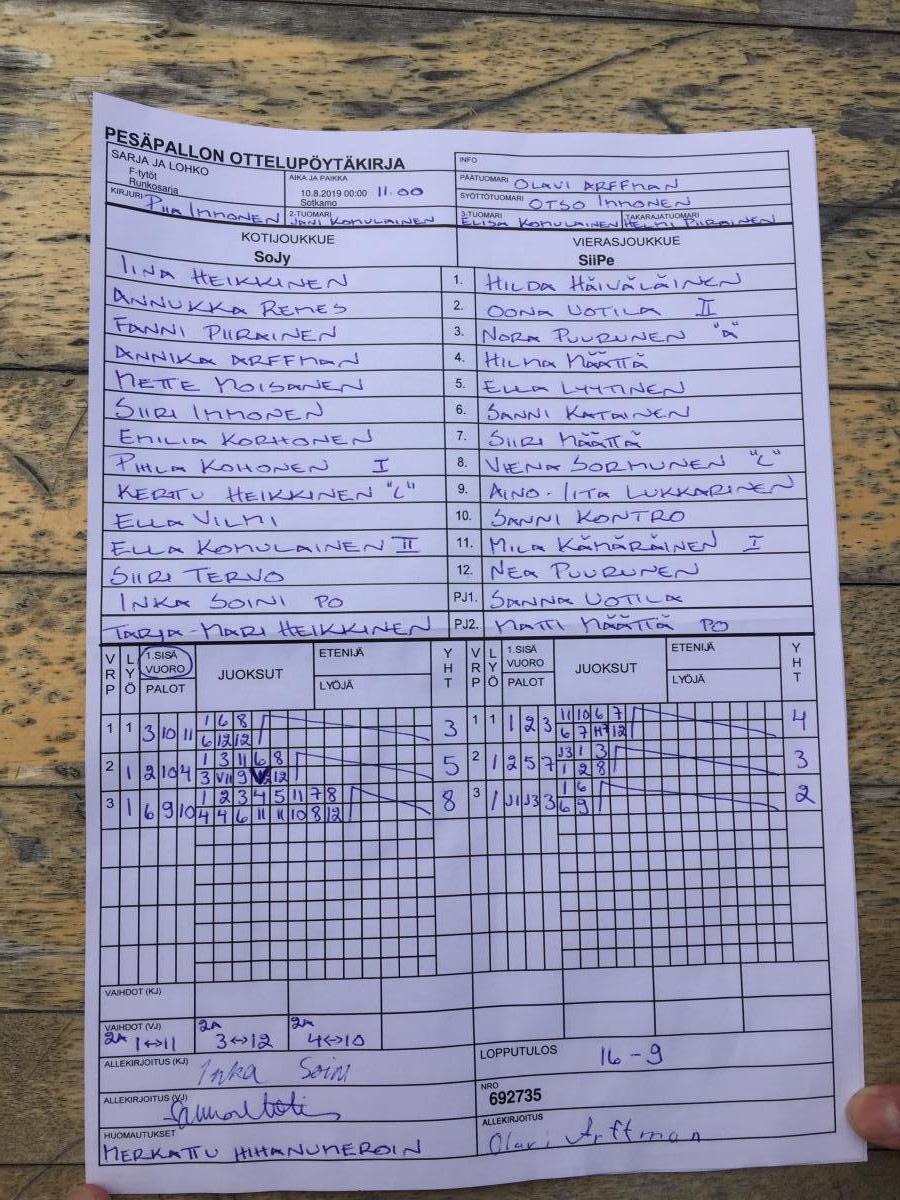 PESÄPALLON OTTELUPÖYTÄKIRJA
SARJA JA LOHKO
F-tytöt
Runkosarja
AIKA JA PAIKKA
10.8.2019 00:00 11.00
Sotkamo
INFO
PÄÄTUOMARI OLAVI ARFFMAN
SYÖTTÖTUOMARI OTSO IMMONEN
KIRJURI PIIA IMMONEN
2-TUOMARI JANI KOMULAINEN
3-TUOMARI ELISA KOMULAINEN
TAKARAJATUOMARI HELMI PIIRAINEN
KOTIJOUKKUE VIERASJOUKKUE
SoJy SiiPe
IINA HEIKKINEN 1. HILDA HÄIVÄLÄINEN
ANNUKKA REMES 2. OONA UOTILA II
FANNI PIIRAINEN 3. NORA PUURUNEN "A"
ANNIKA ARFFMAN 4. HILMA MÄÄTTÄ
METTE MOISANEN 5. ELLA LYYTINEN
SIIRI IMMONEN 6. SANNI KATAINEN
EMILIA KORHONEN 7. SIIRI MÄÄTTÄ
PIHLA KOHONEN I 8. VIENA SORMUNEN "L"
KERTTU HEIKKINEN "L" 9. AINO-IITA LUKKARINEN
ELLA VILMI 10. SANNI KONTRO
ELLA KOMULAINEN II 11. MILA KÄMÄRÄINEN I
SIIRI TERVO 12. NEA PUURUNEN
INKA SOINI PO PJ1. SANNA UOTILA
TARJA-MARI HEIKKINEN PJ2. MATTI MÄÄTTÄ PO
VRP LYÖ 1.SISÄ VUORO PALOT JUOKSUT ETENIJÄ LYÖJÄ YHT VRP LYÖ 1.SISÄ VUORO PALOT JUOKSUT ETENIJÄ LYÖJÄ YHT
1 1 3 10 11 1 6 8 3 1 1 1 2 3 11 10 6 7 4
6 12 12 6 7 12
2 1 2 10 4 1 3 11 6 8 5 2 1 2 5 7 J3 1 3 3
3 VII 9 12 1 2 8
3 1 6 9 10 1 2 3 4 5 11 7 8 8 3 1 J1 J3 3 1 6 2
4 4 6 11 11 10 8 12 6 9
VAIHDOT (KJ)
VAIHDOT (VJ)
2A 1↔11 2A 3↔12 2A 4↔10
ALLEKIRJOITUS (KJ) Inka Soini
LOPPUTULOS 16-9
ALLEKIRJOITUS (VJ)
NRO
692735
HUOMAUTUKSET
MERKATTU HIHANUMEROIN
ALLEKIRJOITUS
Olavi Arffman